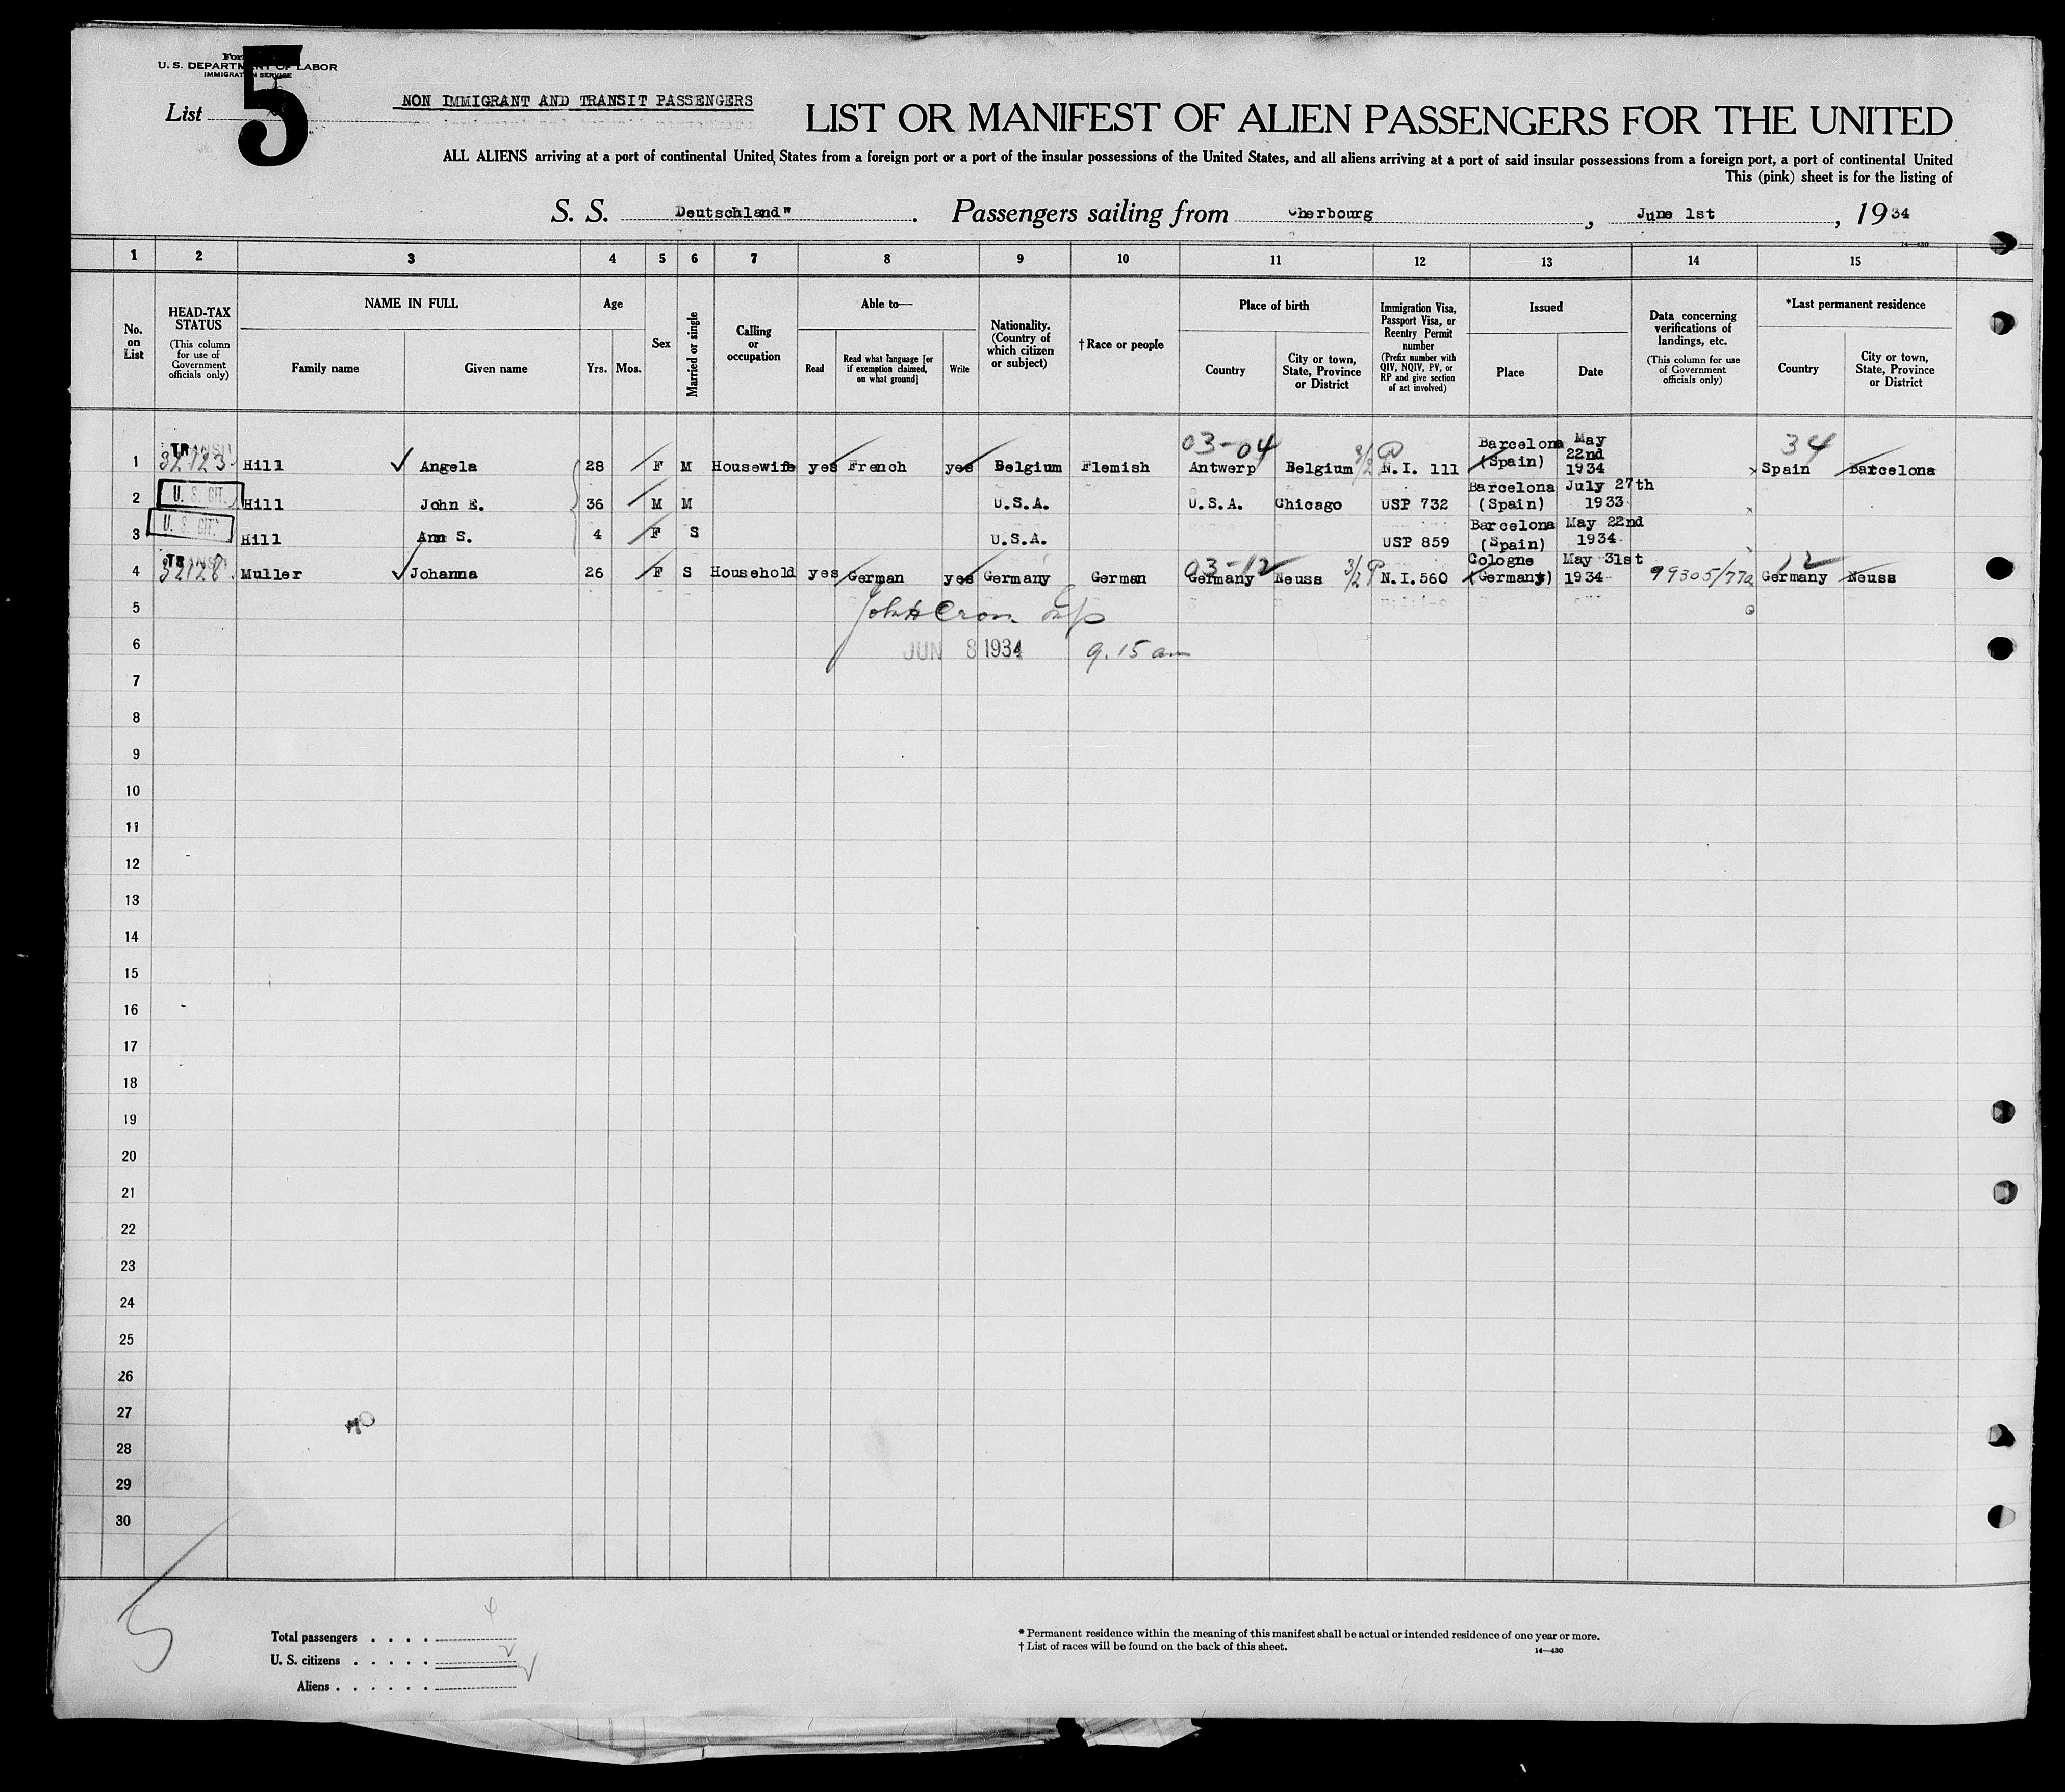 U. S. DEPARTMENT OF LABOR
IMMIGRATION SERVICE
List 5
NON IMMIGRANT AND TRANSIT PASSENGERS
LIST OR MANIFEST OF ALIEN PASSENGERS FOR THE UNITED
ALL ALIENS arriving at a port of continental United States from a foreign port or a port of the insular possessions of the United States, and all aliens arriving at a port of said insular possessions from a foreign port, a port of continental United
This (pink) sheet is for the listing of
S. S. Deutschland". Passengers sailing from Cherbourg, June 1st, 1934
14—430
1 2 3 4 5 6 7 8 9 10 11 12 13 14 15
No. on List
HEAD-TAX STATUS (This column for use of Government officials only)
NAME IN FULL Family name Given name
Age Yrs. Mos.
Sex
Married or single
Calling or occupation
Able to— Read Read what language [or if exemption claimed, on what ground] Write
Nationality. (Country of which citizen or subject)
†Race or people
Place of birth Country City or town, State, Province or District
Immigration Visa, Passport Visa, or Reentry Permit number (Prefix number with QIV, NQIV, PV, or RP and give section of act involved)
Issued Place Date
Data concerning verifications of landings, etc. (This column for use of Government officials only)
*Last permanent residence Country City or town, State, Province or District
1 TRANSIT 32123 Hill Angela 28 F M Housewife yes French yes Belgium Flemish 03-04 Antwerp Belgium 3/2 P N.I. 111 Barcelona (Spain) May 22nd 1934 34 Spain Barcelona
2 U. S. CIT. Hill John E. 36 M M U.S.A. U.S.A. Chicago USP 732 Barcelona (Spain) July 27th 1933
3 U. S. CIT. Hill Ann S. 4 F S U.S.A. USP 859 Barcelona (Spain) May 22nd 1934
4 TRANSIT 32128 Muller Johanna 26 F S Household yes German yes Germany German 03-12 Germany Neuss 3/2 P N.I.560 Cologne (Germany) May 31st 1934 99305/77a 12 Germany Neuss
5
6 JUN 8 1934 9.15 am
7
8
9
10
11
12
13
14
15
16
17
18
19
20
21
22
23
24
25
26
27
28
29
30
5
Total passengers . . . . 4
U. S. citizens . . . . . 2
Aliens . . . . . .
* Permanent residence within the meaning of this manifest shall be actual or intended residence of one year or more.
† List of races will be found on the back of this sheet.
14—430